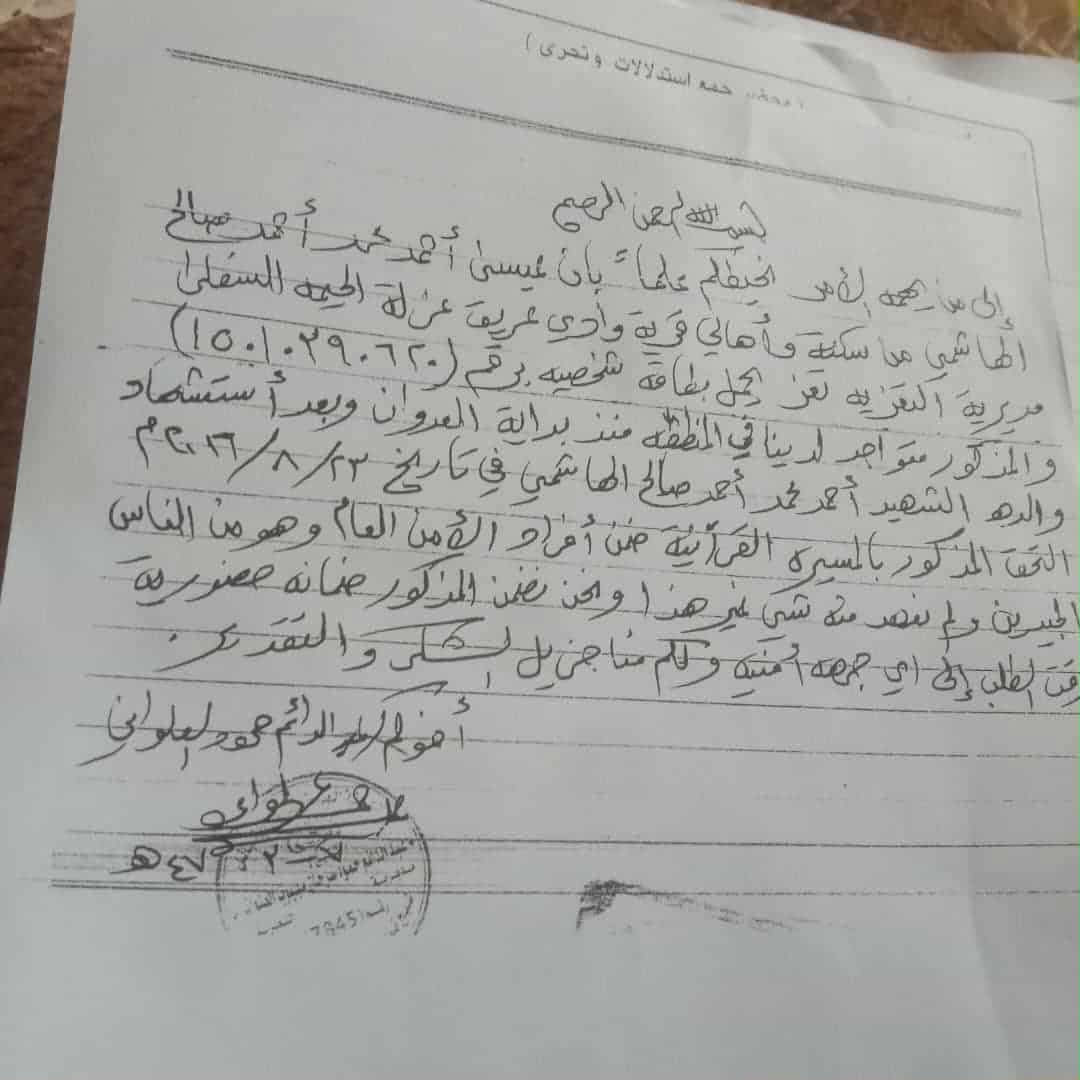 ( محضر جمع استدلالات وتحرى )
بسم الله الرحمن الرحيم
إلى من يهمه الأمر نحيطكم علماً بأن عيسى أحمد محمد أحمد صالح
الهاشمي من سكنة وأهالي قرية وادي عريق عزلة الحيمه السفلى
مديرية التعزيه تعز يحمل بطاقة شخصيه برقم (١٥٠١٠٢٩٠٦٢٠)
والمذكور متواجد لدينا في المنطقه منذ بداية العدوان وبعد أستشهاد
والده الشهيد أحمد محمد أحمد صالح الهاشمي في تاريخ ٢٣/٨/٢٠١٦م
التحق المذكور بالمسيره القرآنية ضمن أفراد الأمن العام وهو من الناس
الجيدين ولم نعهد منه شي غير هذا ونحن نضمن المذكور ضمانه حضورية
وقت الطلب إلى اي جهه أمنيه ولكم منا جزيل الشكر والتقدير.
أخوكم عبد الدائم حمود العلواني
٤٧ هـ
7845